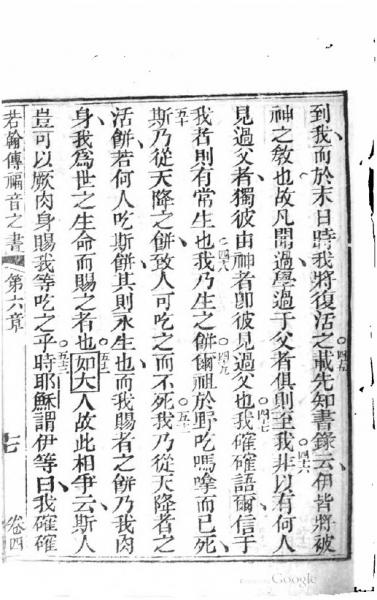 到我而於末日時我將復活之○四五載先知書錄云伊皆將被
神之敎也故凡聞過學過于父者俱則至我○四六非以有何人
見過父者獨彼由神者卽彼見過父也○四七我確確語爾信于
我者則有常生也○四八我乃生之餅○四九爾祖於野吃嗎嗱而已死
○五十斯乃從天降之餅致人可吃之而不死○五一我乃從天降者之
活餅若何人吃斯餅其則永生也而我賜者之餅乃我肉
身我爲世之生命而賜之者也○五二如大人故此相爭云斯人
豈可以厥肉身賜我等吃之乎○五三時耶穌謂伊等曰我確確
若翰傳福音之書 第六章 十七 卷四
Google